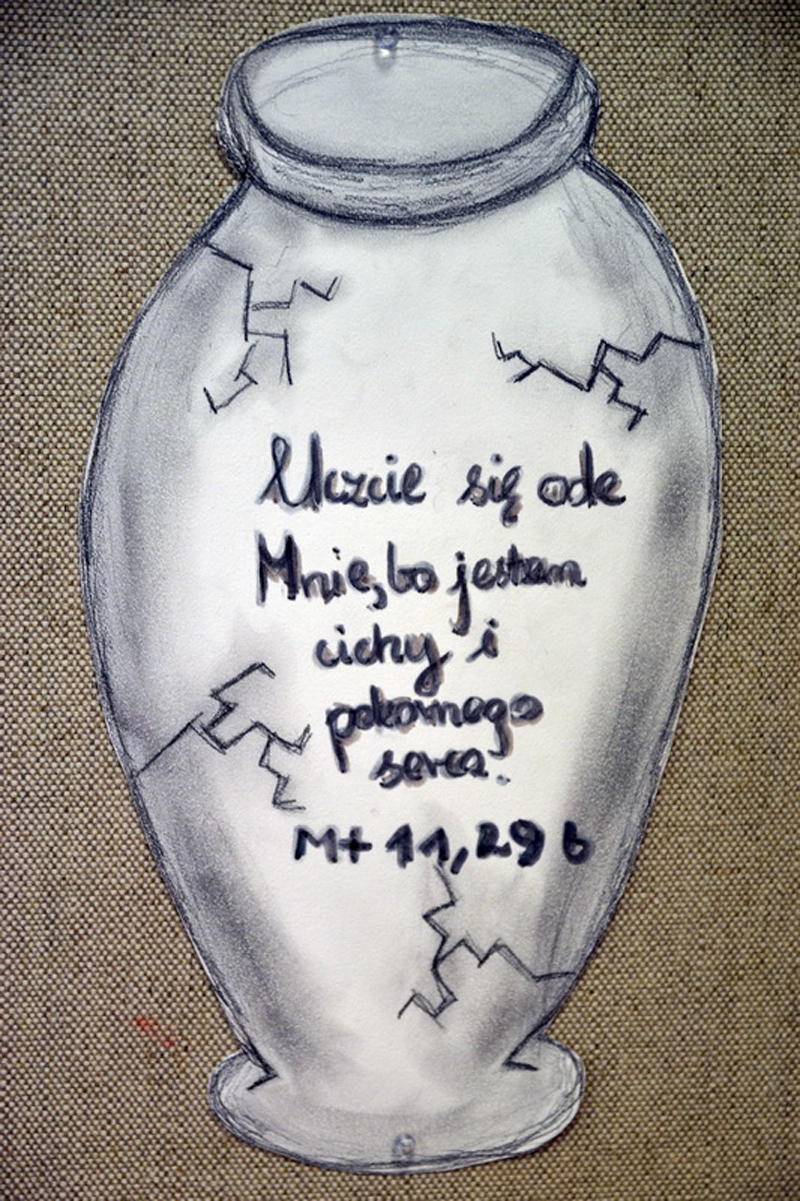 Uczcie się ode
Mnie, bo jestem
cichy i
pokornego
serca.
Mt 11, 29 b